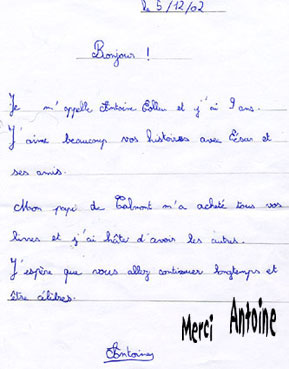 le 5/12/02
Bonjour !
Je m'appelle Antoine et j'ai 9 ans.
J'aime beaucoup vos histoires avec César et
ses amis.
Mon papi de Talmont m'a acheté tous vos
livres et j'ai hâte d'avoir les autres.
J'espère que vous allez continuer longtemps et
être célèbres.
Antoine
Merci Antoine